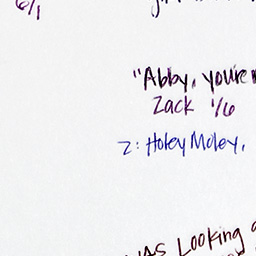 6/1
"Abby, you're
Zack 1/6
Z: Holey Moley,
WAS LOOKING